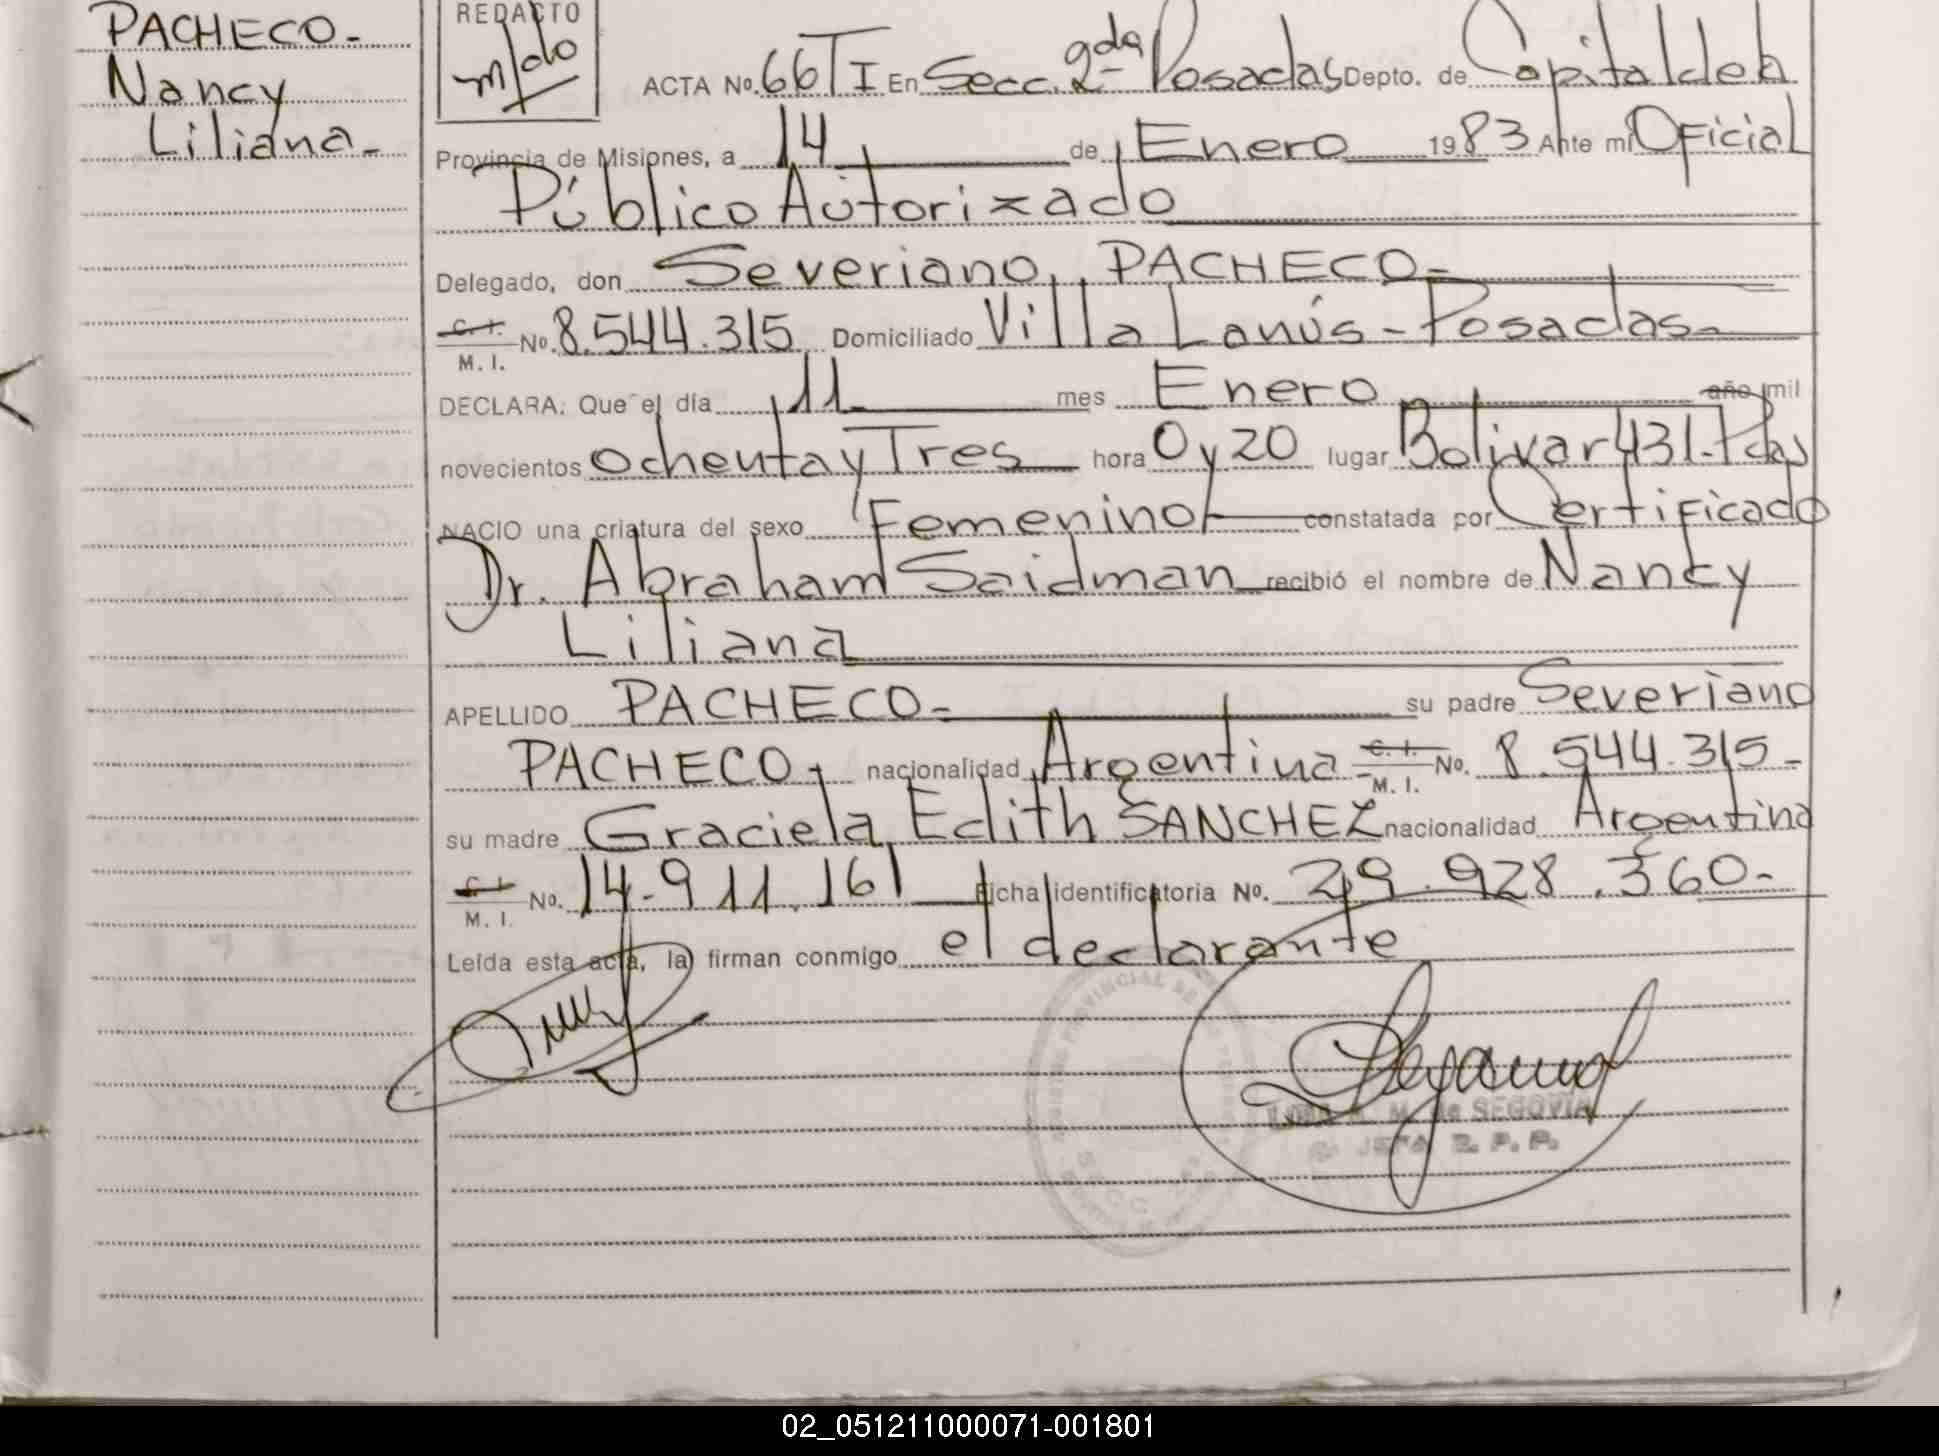 PACHECO-
Nancy
Liliana-
REDACTO
ACTA No. 66 T I En Secc. 2da Posadas Depto. de Capital de la
Provincia de Misiones, a 14 de Enero 1983 Ante mi Oficial
Público Autorizado
Delegado, don Severiano PACHECO-
C. I. M. I. No. 8.544.315 Domiciliado Villa Lanús - Posadas-
DECLARA: Que el día 11 mes Enero año mil
novecientos ochenta y Tres hora 0 y 20 lugar Bolivar 431-Pdas
NACIO una criatura del sexo Femenino constatada por Certificado
Dr. Abraham Saidman recibió el nombre de Nancy
Liliana
APELLIDO PACHECO- su padre Severiano
PACHECO- nacionalidad Argentina C. I. M. I. No. 8.544.315-
su madre Graciela Edith SANCHEZ nacionalidad Argentina
C. I. M. I. No. 14.911.161 Ficha identificatoria No. 29.928.360-
Leída esta acta, la firman conmigo el declarante
M. de SEGOVIA
JEFA R. P. P.
02_051211000071-001801